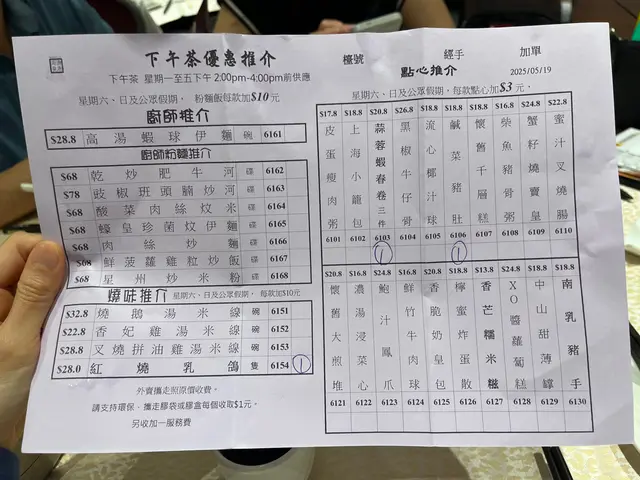 下午茶優惠推介
檯號
經手
加單
下午茶 星期一至五下午 2:00pm-4:00pm前供應
點心推介
2025/05/19
星期六、日及公眾假期， 粉麵飯每款加$10元
星期六、日及公眾假期，每款點心加$3 元。
廚師推介
$28.8 高湯蝦球伊麵 碗 6161
廚師粉麵推介
$68 乾炒肥牛河 碟 6162
$78 豉椒班頭腩炒河 碟 6163
$68 酸菜肉絲炆米 碟 6164
$68 蠔皇珍菌炆伊麵 碟 6165
$68 肉絲炒麵 碟 6166
$68 鮮菠蘿雞粒炒飯 碟 6167
$68 星州炒米粉 碟 6168
燒味推介 星期六、日及公眾假期， 每款加$10元
$32.8 燒鵝湯米線 碗 6151
$22.8 香妃雞湯米線 碗 6152
$28.8 叉燒拼油雞湯米線 碗 6153
$28.0 紅燒乳鴿 隻 6154 1
外賣攜走照原價收費。
請支持環保、攜走膠袋或膠盒每個收取$1元。
另收加一服務費
$17.8 皮蛋瘦肉粥 6101
$18.8 上海小籠包 6102
$20.8 蒜蓉蝦春卷三件 6103 1
$18.8 黑椒牛仔骨 6104
$18.8 流心椰汁球 6105
$18.8 鹹菜豬肚 6106 1
$18.8 懷舊千層糕 6107
$18.8 柴魚豬骨粥 6108
$24.8 蟹籽燒賣皇 6109
$22.8 蜜汁叉燒腸 6110
$20.8 懷舊大煎堆 6121
$16.8 濃湯浸菜心 6122
$24.8 鮑汁鳳爪 6123
$16.8 鮮竹牛肉球 6124
$20.8 香脆奶皇包 6125
$18.8 檸蜜炸蛋散 6126
$13.8 香芒糯米糍 6127
$24.8 XO醬蘿蔔糕 6128
$18.8 中山甜薄罉 6129
$18.8 南乳豬手 6130